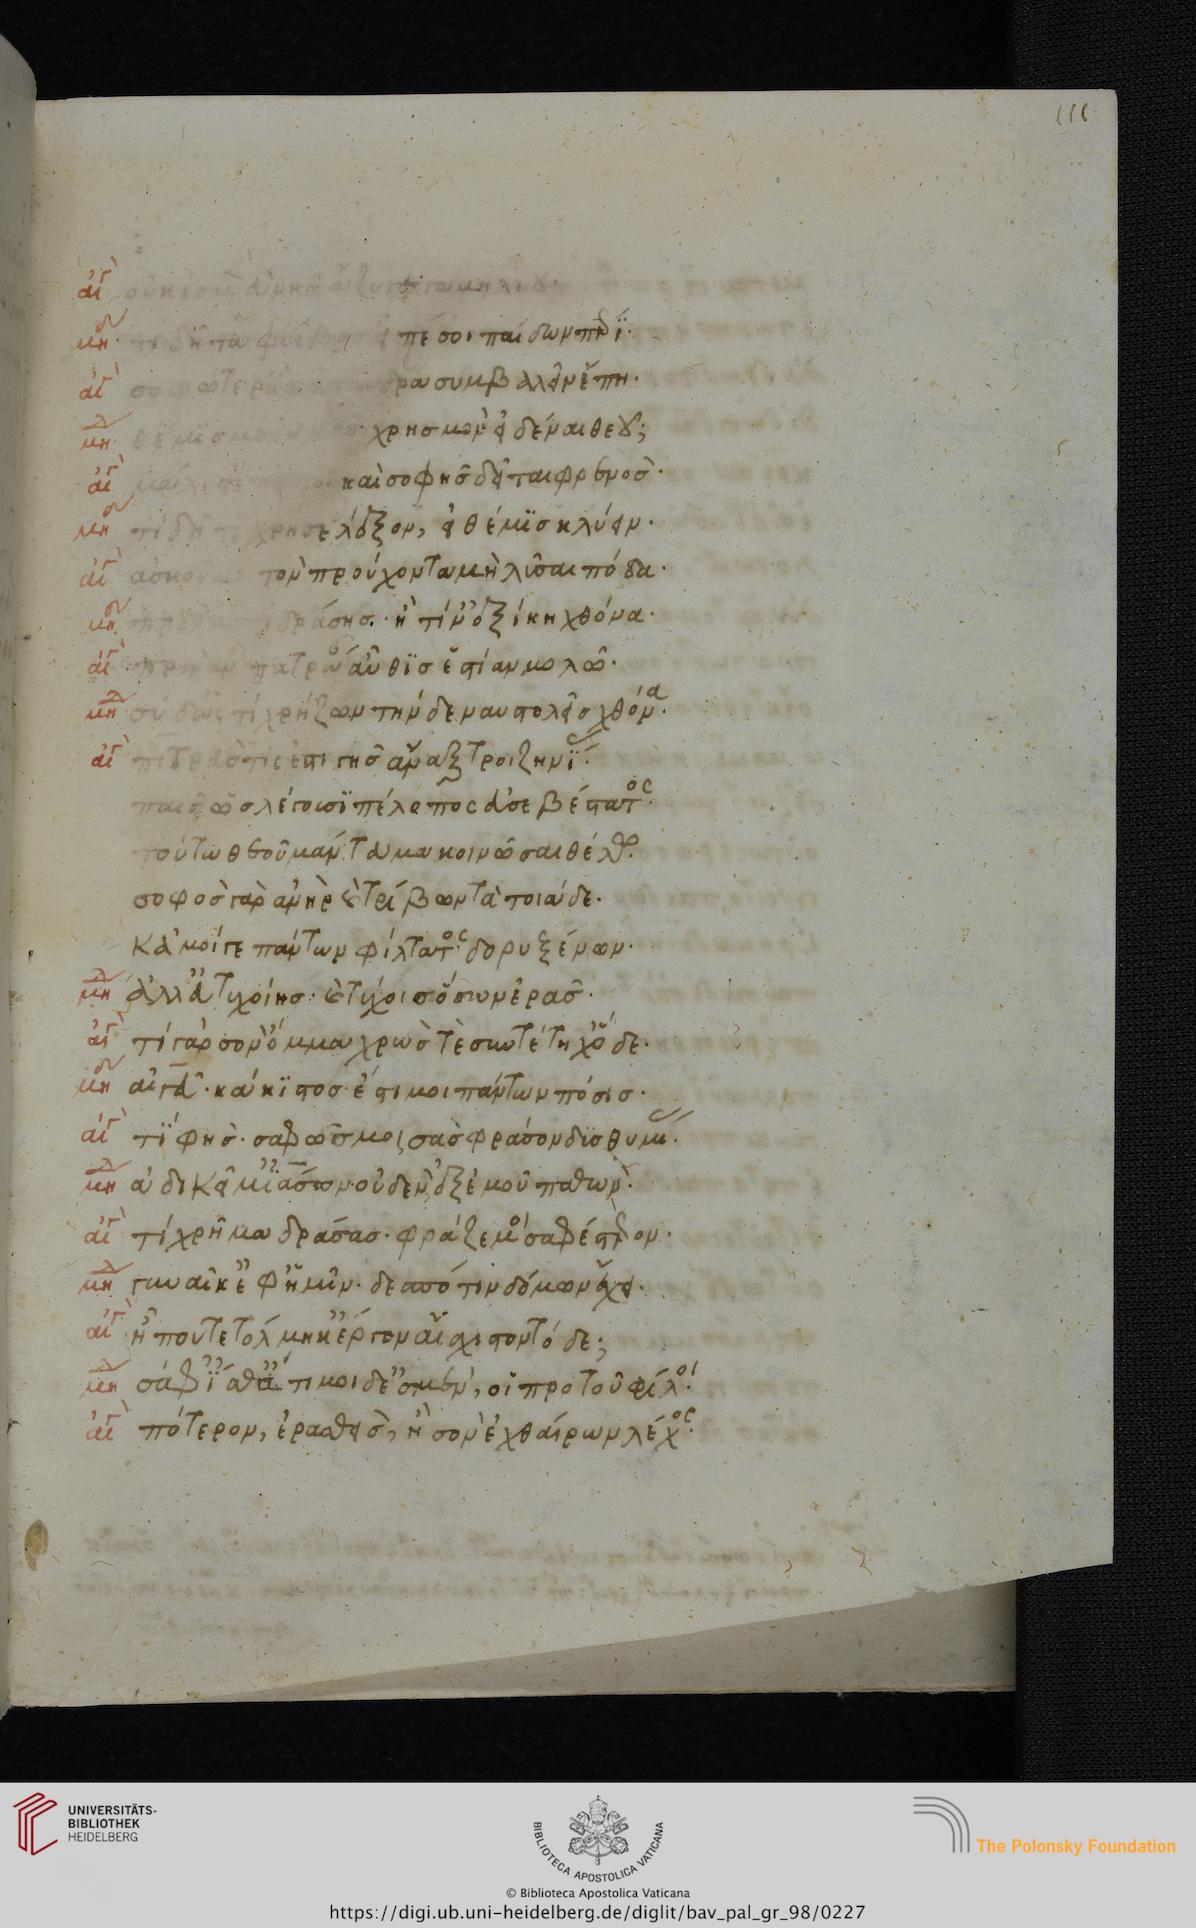 111
αἰγ
μηδ πέσοι παίδων πέρι·
αἰγ συμβαλεῖν ἔπη·
μηδ θέμις χρησμὸν εἰδέναι θεοῦ;
αἰγ καὶ σοφῆς δεῖται φρενός·
μηδ τί δῆτ' ἔχρησε λέξον, εἰ θέμις κλύειν·
αἰγ ἀσκοῦ με τὸν προύχοντα μὴ λῦσαι πόδα·
μηδ πρὶν ἂν τί δράσης· ἢ τίν' ἐξίκη χθόνα·
αἰγ πρὶν ἂν πατρώαν αὖθις ἑστίαν μολῶ·
μηδ σὺ δ' ὡς τί χρήζων τήνδε ναυστολεῖς χθόνα·
αἰγ πιτθεύς τίς ἐστι γῆς ἄναξ τροιζηνίας·
παῖς ὡς λέγουσι πέλοπος εὐσεβέστατος·
τούτω θεοῦ μάντευμα κοινῶσαι θέλω·
σοφὸς γὰρ ἀνὴρ καὶ τρίβων τὰ τοιάδε·
κἀμοί γε πάντων φίλτατος δορυξένων·
μηδ ἀλλ' εὐτυχοίης· καὶ τύχοις ὅσων ἐρᾶς·
αἰγ τί γὰρ σὸν ὄμμα χρώς τε συντέτηχ' ὅδε·
μηδ αἰγεῦ· κάκιστος ἐστί μοι πάντων πόσις·
αἰγ τί φής· σαφῶς μοι σὰς φράσον δυσθυμίας·
μηδ ἀδικεῖ μ' ἰάσων· οὐδὲν ἐξ ἐμοῦ παθών·
αἰγ τί χρῆμα δράσας· φράζε μοι σαφέστερον·
μηδ γυναῖκ' ἐφ' ἡμῖν· δεσπότιν δόμων ἔχει·
αἰγ ἦ που τετόλμηκ' ἔργον αἴσχιστον τόδε;
μηδ σάφ' ἴσθ' ἄτιμοι δ' ἐσμέν, οἱ πρὸ τοῦ φίλοι·
αἰγ πότερον, ἐρασθεὶς, ἢ σὸν ἐχθαίρων λέχος·
UNIVERSITÄTS-
BIBLIOTHEK
HEIDELBERG
BIBLIOTECA APOSTOLICA VATICANA
© Biblioteca Apostolica Vaticana
The Polonsky Foundation
https://digi.ub.uni-heidelberg.de/diglit/bav_pal_gr_98/0227